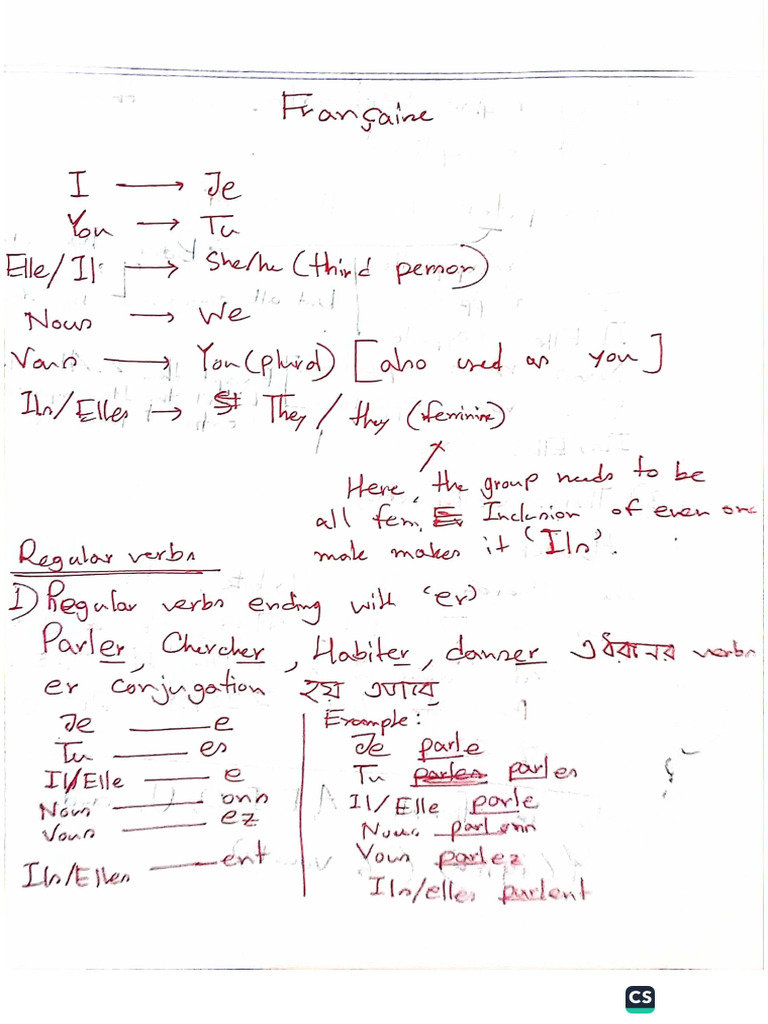 Françaine
I → Je
You → Tu
Elle/Il → She/he (third person)
Nous → We
Vous → You (plural) [also used as you]
Ils/Elles → They / they (feminine)
Here, the group needs to be
all fem. Inclusion of even one
male makes it 'Ils'.
Regular verbs
1) Regular verbs ending with 'er'
Parler, Chercher, Habiter, danser এ ধরানের verbs
er conjugation হয় এভাবে
Je ____e
Tu ____es
Il/Elle ____e
Nous ____ons
Vous ____ez
Ils/Elles ____ent
Example:
Je parle
Tu parles parles
Il/Elle parle
Nous parlons
Vous parlez
Ils/elles parlent
ç
CS